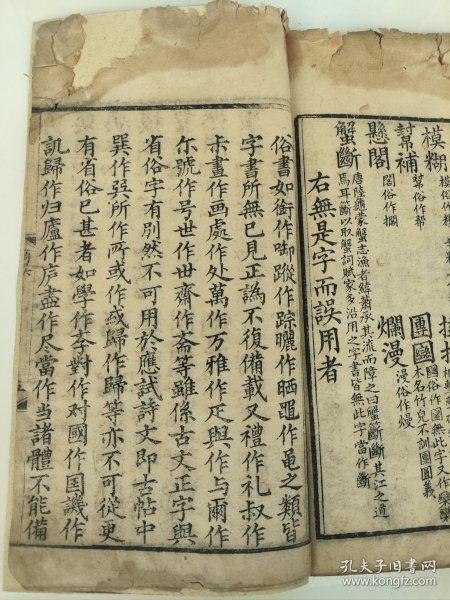 模糊
幫補 幫俗作帮
團圞
木名竹兒不訓團圓義
懸閣 閣俗作擱
爛漫 漫俗作熳
蟹斷 唐陸龜蒙蟹志漁者緯蕭承其流而障之曰蟹斷斷其江之道
焉耳斷以取蟹詞賦家多沿用之字書皆無此字當作斷
右無是字而誤用者
俗書如銜作啣蹤作踪曬作晒黽作黾之類皆
字書所無已見正譌不復備載又禮作礼叔作
尗畫作画處作处萬作万雅作疋與作与爾作
尔號作号世作丗齋作斋等雖係古文正字與
省俗字有別然不可用於應試詩文即古帖中
巽作㢲所作𠩄或作戓歸作㱕等亦不可從更
有省俗已甚者如學作斈對作对國作囯譏作
讥歸作归廬作庐盡作尽當作当諸體不能備
孔夫子旧书网
www.kongfz.com